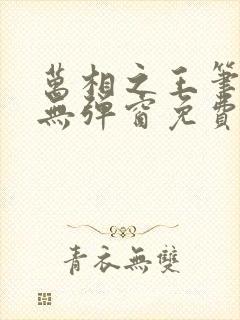 萬相之王筆
無彈窗免費
青衣無雙